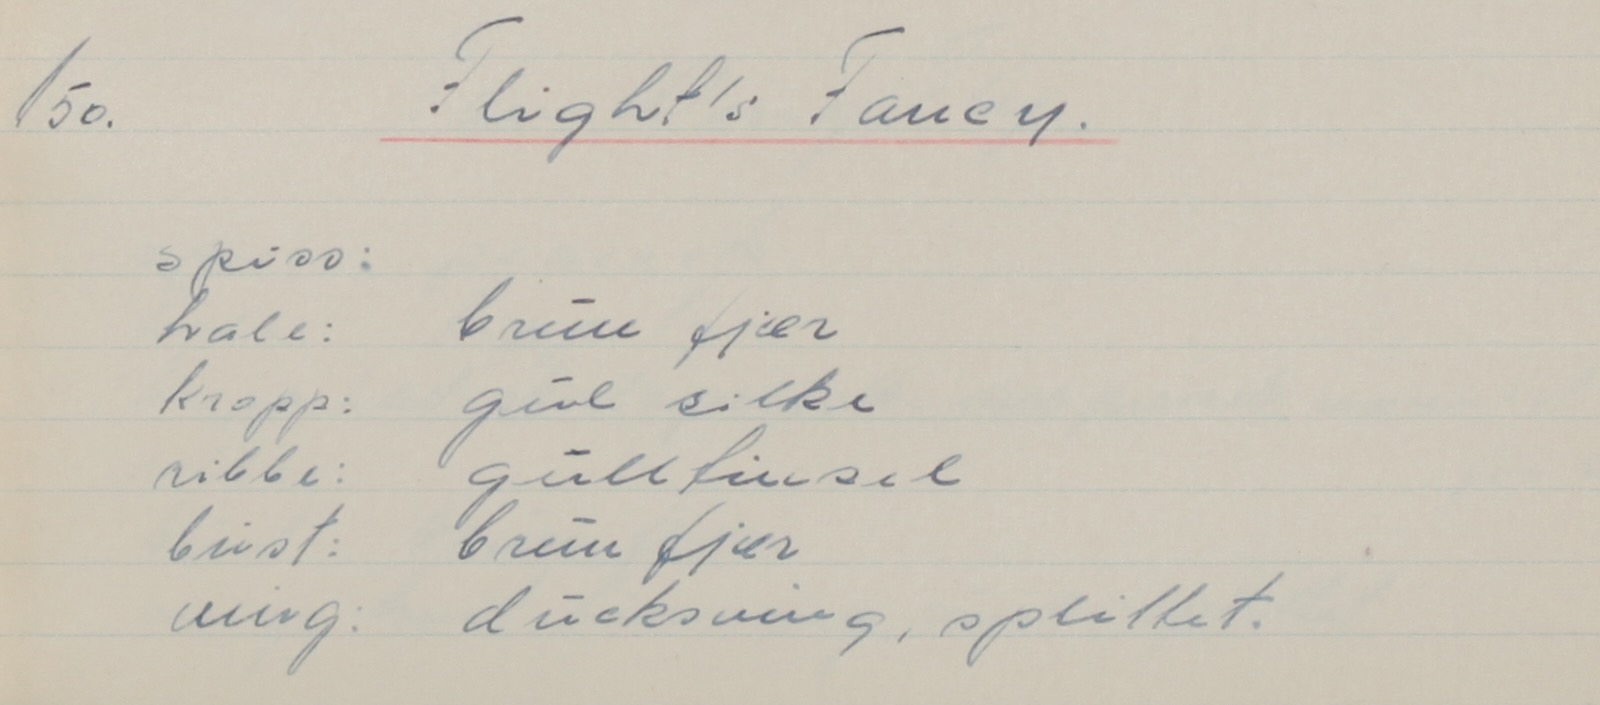 /50. Flight's Fancy.
spiss:
hale: brun fjær
kropp: gul silke
ribbe: gulltinsel
bust: brun fjær
ving: ducksving, splittet.